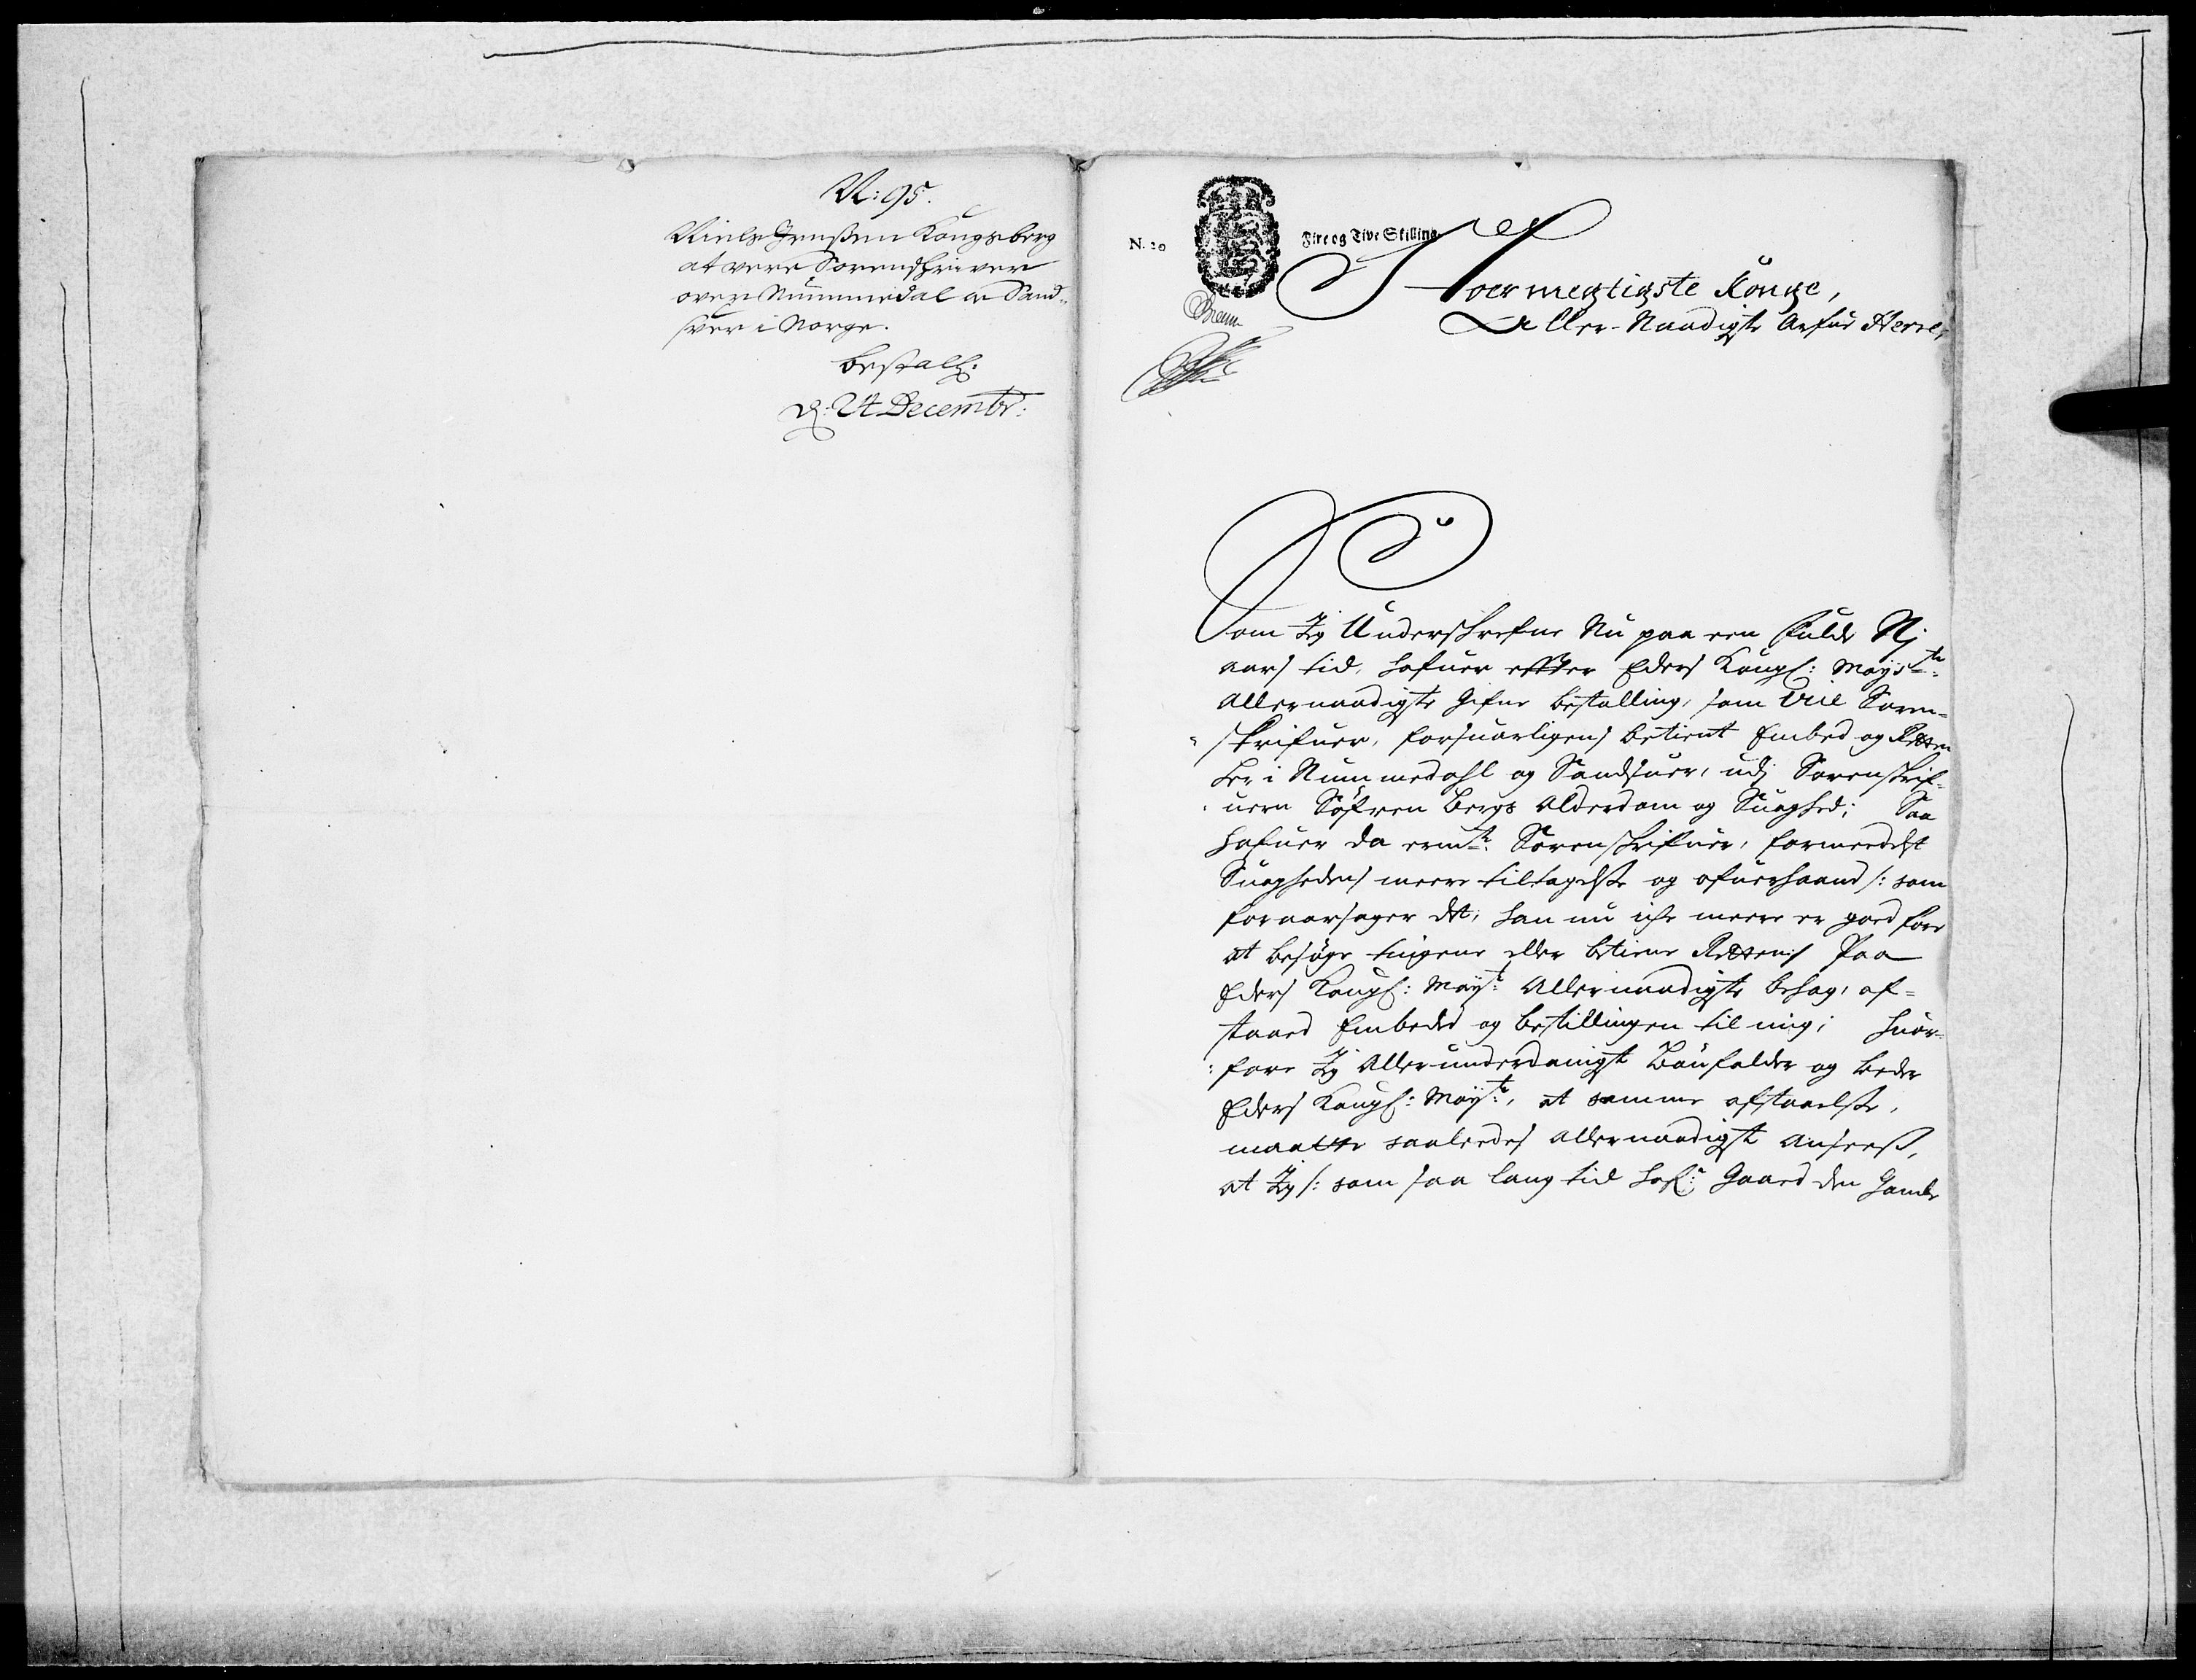 N: 95.
Niels Jenßen Kongsberg
at være Sorenschriver
over Nummedal og Sand-
svær i Norge.
bestalg:
d: 24 Decembr:
N. 20
Fire og Tive Skilling
Stoermegtigste Konge,
Aller-Naadigste Arfue Herre,
Som Jeg Underschrefne Nu paa een fulde Nj
aars tid, hafuer effter Eders Kongl: Mays:te
Allernaadigste Gifne bestalling, som Vice Soren-
skrifuer, forsuarligens betient Embed og Retten
her i Nummedahl og Sandsuer, udj Sorenskrif-
uern Søfren Bergs Alderdom og Suaghed; Saa
hafuer da ermte: Sorenskrifuer, formeedelst
Suaghedens meere tiltagelse og ofuerhaand /: som
foraarsager det, han nu iche meere er goed fore
at besøge tingene eller betiene Retten:/ Paa
Eders Kongl: Mayt: Allernaadigste behag, af-
staaed Embedet og bestillingen til mig; huor-
fore Jeg Allerunderdanigst Bønfalder og beder
Eders Kongl: Mayte:, at samme afstaaelse,
maatte saaleedes allernaadigst Ansees,
at Jeg /: som saa lang tid haf: Gaaed den Gamle